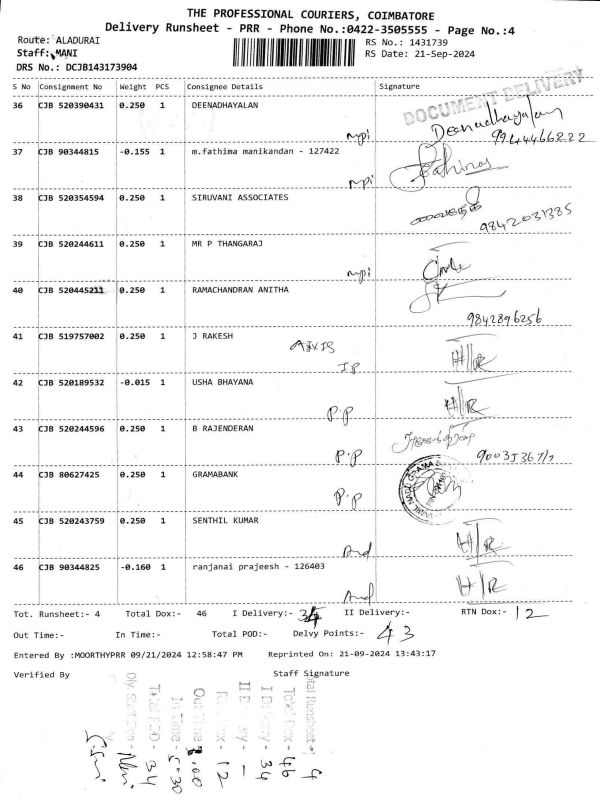 THE PROFESSIONAL COURIERS, COIMBATORE
Delivery Runsheet - PRR - Phone No.:0422-3505555 - Page No.:4
Route: ALADURAI
Staff: MANI
DRS No.: DCJB143173904
RS No.: 1431739
RS Date: 21-Sep-2024
S No Consignment No Weight PCS Consignee Details Signature
DOCUMENT DELIVERY
36 CJB 520390431 0.250 1 DEENADHAYALAN
mpi Deenadhayalan
9944466222
37 CJB 90344815 -0.155 1 m.fathima manikandan - 127422
mpi
38 CJB 520354594 0.250 1 SIRUVANI ASSOCIATES
9842031385
39 CJB 520244611 0.250 1 MR P THANGARAJ
mpi
40 CJB 520445211 0.250 1 RAMACHANDRAN ANITHA
9842896256
41 CJB 519757002 0.250 1 J RAKESH
AXIS
IP H/R
42 CJB 520189532 -0.015 1 USHA BHAYANA
P.P H/R
43 CJB 520244596 0.250 1 B RAJENDERAN
P.P
44 CJB 80627425 0.250 1 GRAMABANK
P.P
45 CJB 520243759 0.250 1 SENTHIL KUMAR
H/R
46 CJB 90344825 -0.160 1 ranjanai prajeesh - 126403
H/R
Tot. Runsheet:- 4 Total Dox:- 46 I Delivery:- 34 II Delivery:- RTN Dox:- 12
Out Time:- In Time:- Total POD:- Delvy Points:- 43
Entered By :MOORTHYPRR 09/21/2024 12:58:47 PM Reprinted On: 21-09-2024 13:43:17
Verified By Staff Signature
4
46
I Delivery - 34
II Delivery -
12
Out Time
In Time - 5:30
Total POD - 34